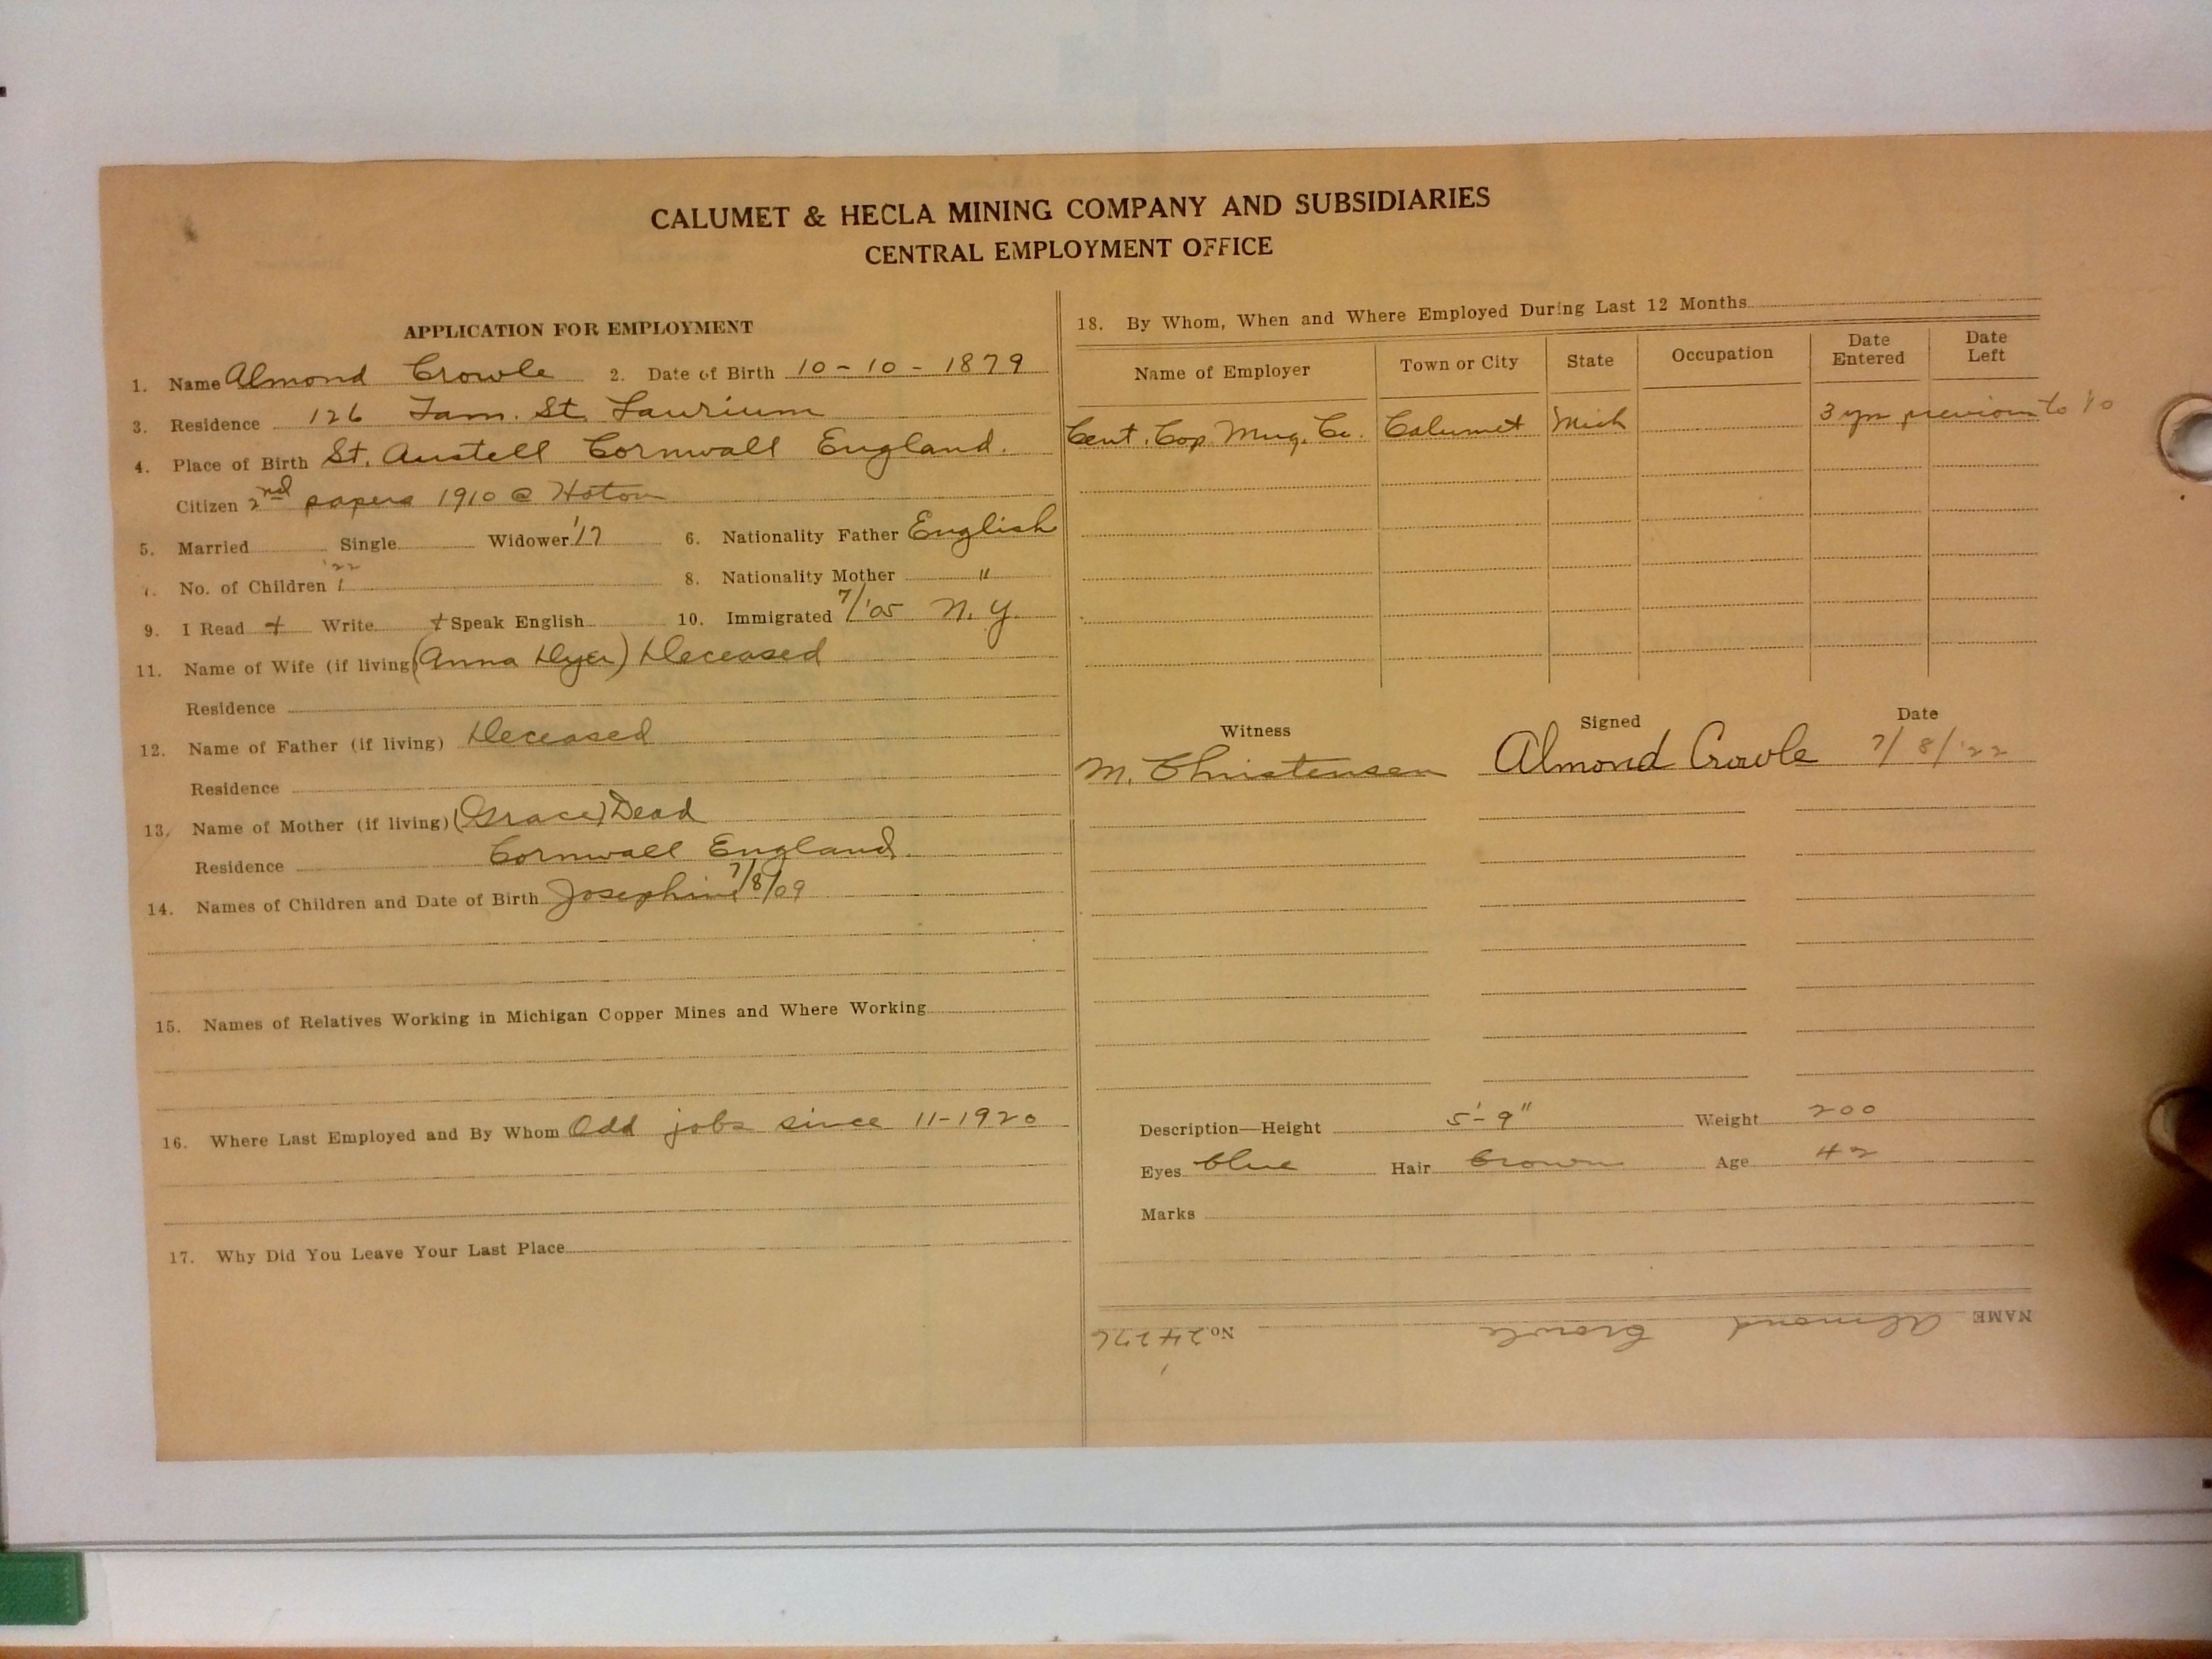 CALUMET & HECLA MINING COMPANY AND SUBSIDIARIES
CENTRAL EMPLOYMENT OFFICE
APPLICATION FOR EMPLOYMENT
1. Name Almond Crowle 2. Date of Birth 10-10-1879
3. Residence 126 Tam. St. Laurium
4. Place of Birth St. Austell Cornwall England.
Citizen 2nd papers 1910 @ Hoton
5. Married Single Widower '17 6. Nationality Father English
7. No. of Children 1 '22 8. Nationality Mother "
9. I Read + Write + Speak English 10. Immigrated 7/'05 N.Y.
11. Name of Wife (if living) (Anna Dyer) Deceased
Residence
12. Name of Father (if living) Deceased
Residence
13. Name of Mother (if living) (Grace) Dead
Residence Cornwall England.
14. Names of Children and Date of Birth Josephine 7/8/09
15. Names of Relatives Working in Michigan Copper Mines and Where Working
16. Where Last Employed and By Whom Odd jobs since 11-1920
17. Why Did You Leave Your Last Place
18. By Whom, When and Where Employed During Last 12 Months
Name of Employer Town or City State Occupation Date Entered Date Left
Cent. Cop. Mng. Co. Calumet Mich 3 yrs previous to
Witness Signed Date
M. Christensen Almond Crowle 7/8/'22
Description—Height 5'-9" Weight 200
Eyes blue Hair brown Age 42
Marks
NAME Almond Crowle No. 24276